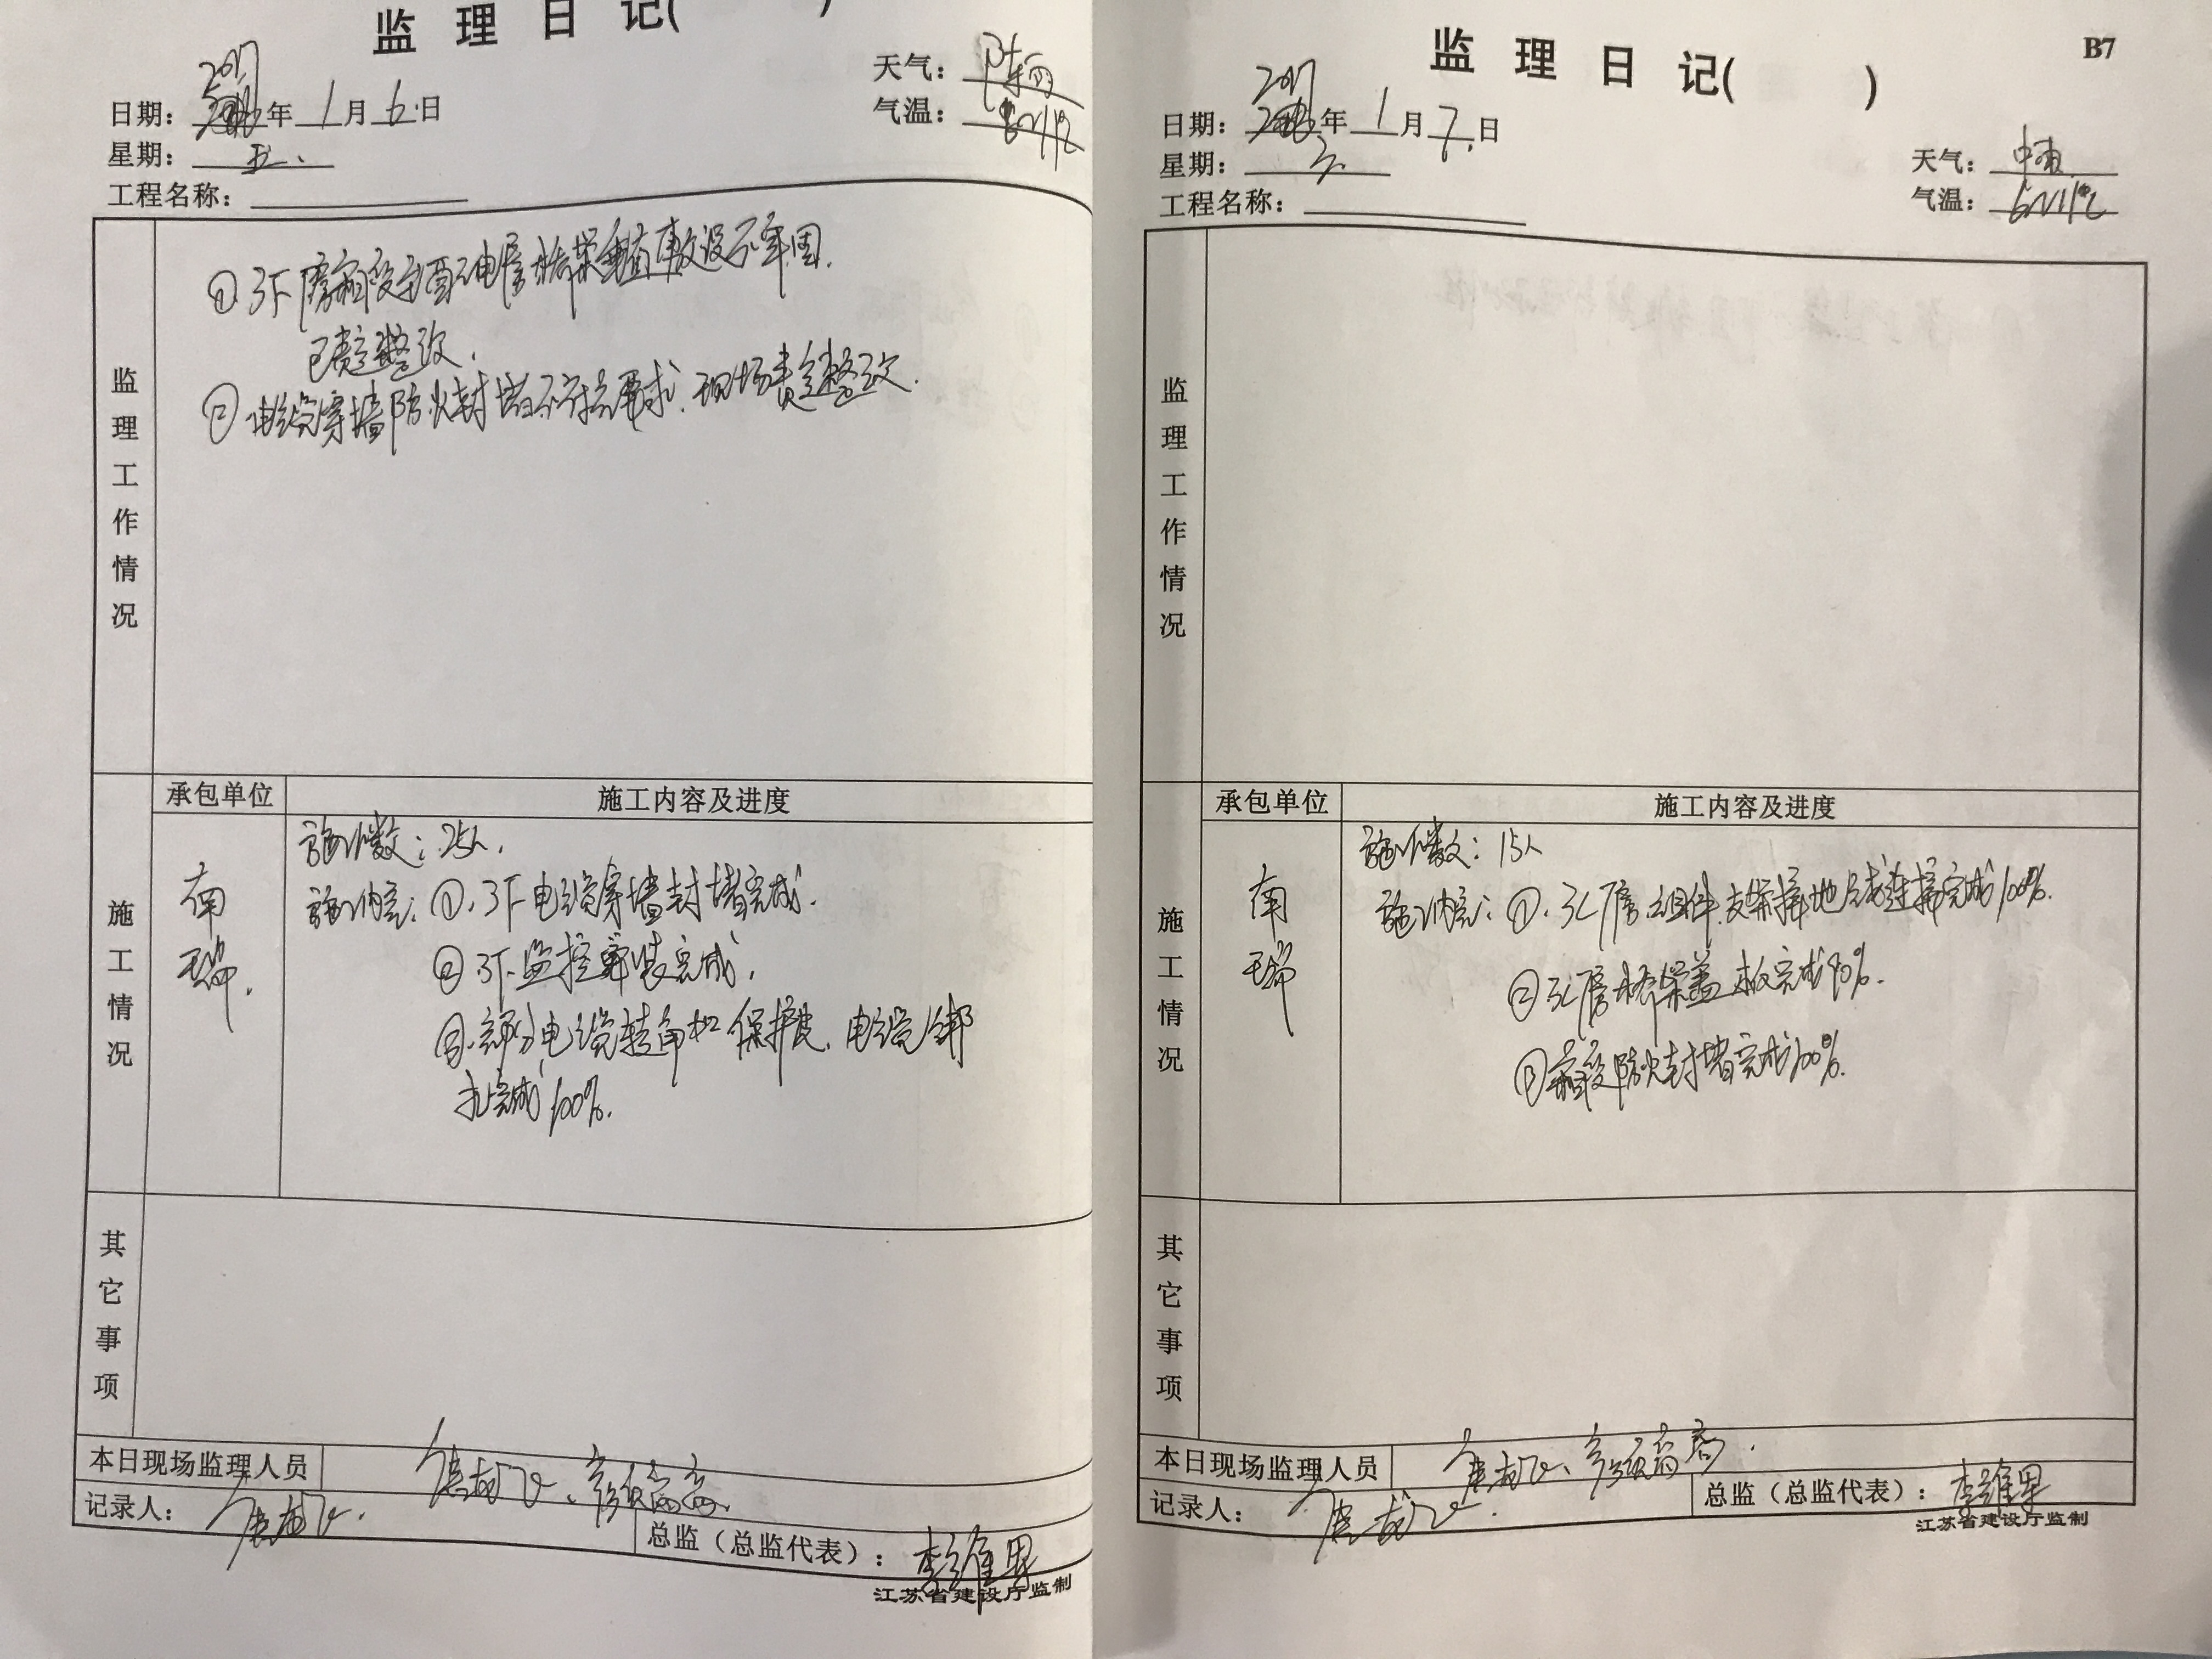 监理日记(
)
日期：2017年1月6日
天气：阵雨
星期：五.
气温：
工程名称：
监理工作情况
①3下 电房桥架垂直敷设不牢固.
已责令整改.
②电缆穿墙防火封堵不符合要求.现场责令整改.
施工情况
承包单位
施工内容及进度
南瑞.
施工人数：25人.
施工内容：①.3下电缆穿墙封堵完成.
②3下监控安装完成.
③.部分电缆转角加保护皮.电缆绑
扎完成100%.
其它事项
本日现场监理人员
记录人：
总监（总监代表）：李维果
江苏省建设厅监制
B7
监理日记( )
日期：2017年1月7.日
星期：
天气：中雨
气温：6~11℃
工程名称：
监理工作情况
施工情况
承包单位
施工内容及进度
南瑞
施工人数：15人
施工内容：①.3 厝组件.支架接地线连接完成100%.
②3 厝桥架盖板完成90%.
③箱变防火封堵完成100%.
其它事项
本日现场监理人员
记录人：
总监（总监代表）：李维果
江苏省建设厅监制